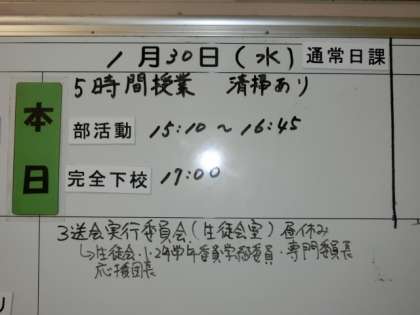 1月30日(水) 通常日課
本日
5時間授業 清掃あり
部活動 15:10~16:45
完全下校 17:00
3送会実行委員会(生徒会室)昼休み
↳生徒会・1・2年学年委員学級委員・専門委員長
応援団長